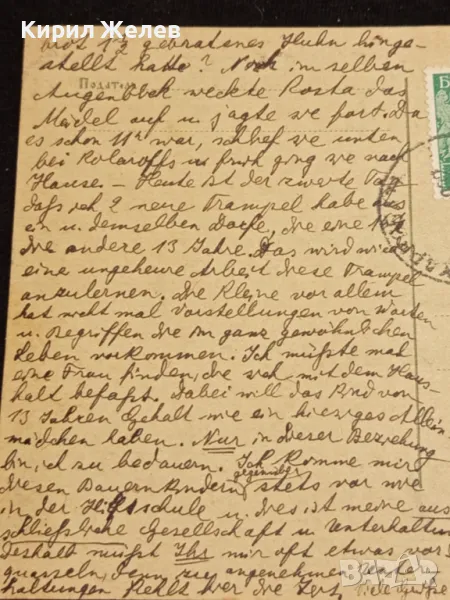 Кирил Желев
mot 1½ gebratenes Huhn hinge-
stellt hatte? Noch im selben
Податель
Augenblick weckte Rosta das
Mädel auf u. jagte sie fort. Da
es schon 11h war, schlief sie unten
bei Kolaroffs u. früh ging sie nach
Hause. – Heute ist der zweite Tag
daß ich 2 neue Trampel habe aus
ein u. demselben Dorfe, die eine
die andere 13 Jahre. Das wird wieder
eine ungeheure Arbeit diese Trampel
anzulernen. Die Kleine vor allem
hat nicht mal Vorstellungen von Worten
u. Begriffen die im ganz gewöhnlichen
Leben vorkommen. Ich müßte mal
eine Frau finden, die sich mit dem Haus-
halt befaßt. Dabei will das Kind von
13 Jahren Gehalt wie ein hiesiges Allein
mädchen haben. Nur in dieser Beziehung
bin ich zu bedauern. Ich komme mir
gegenüber
diesen Bauernkindern stets vor wie
in der Hilfsschule u. dies ist meine aus
schließliche Gesellschaft u. Unterhaltung
deshalb müßt Ihr mir oft etwas vor-
quasseln, denn zu angenehmen
haltungen fehlt hier die Zeit. Viele Grüße
bazar.bg